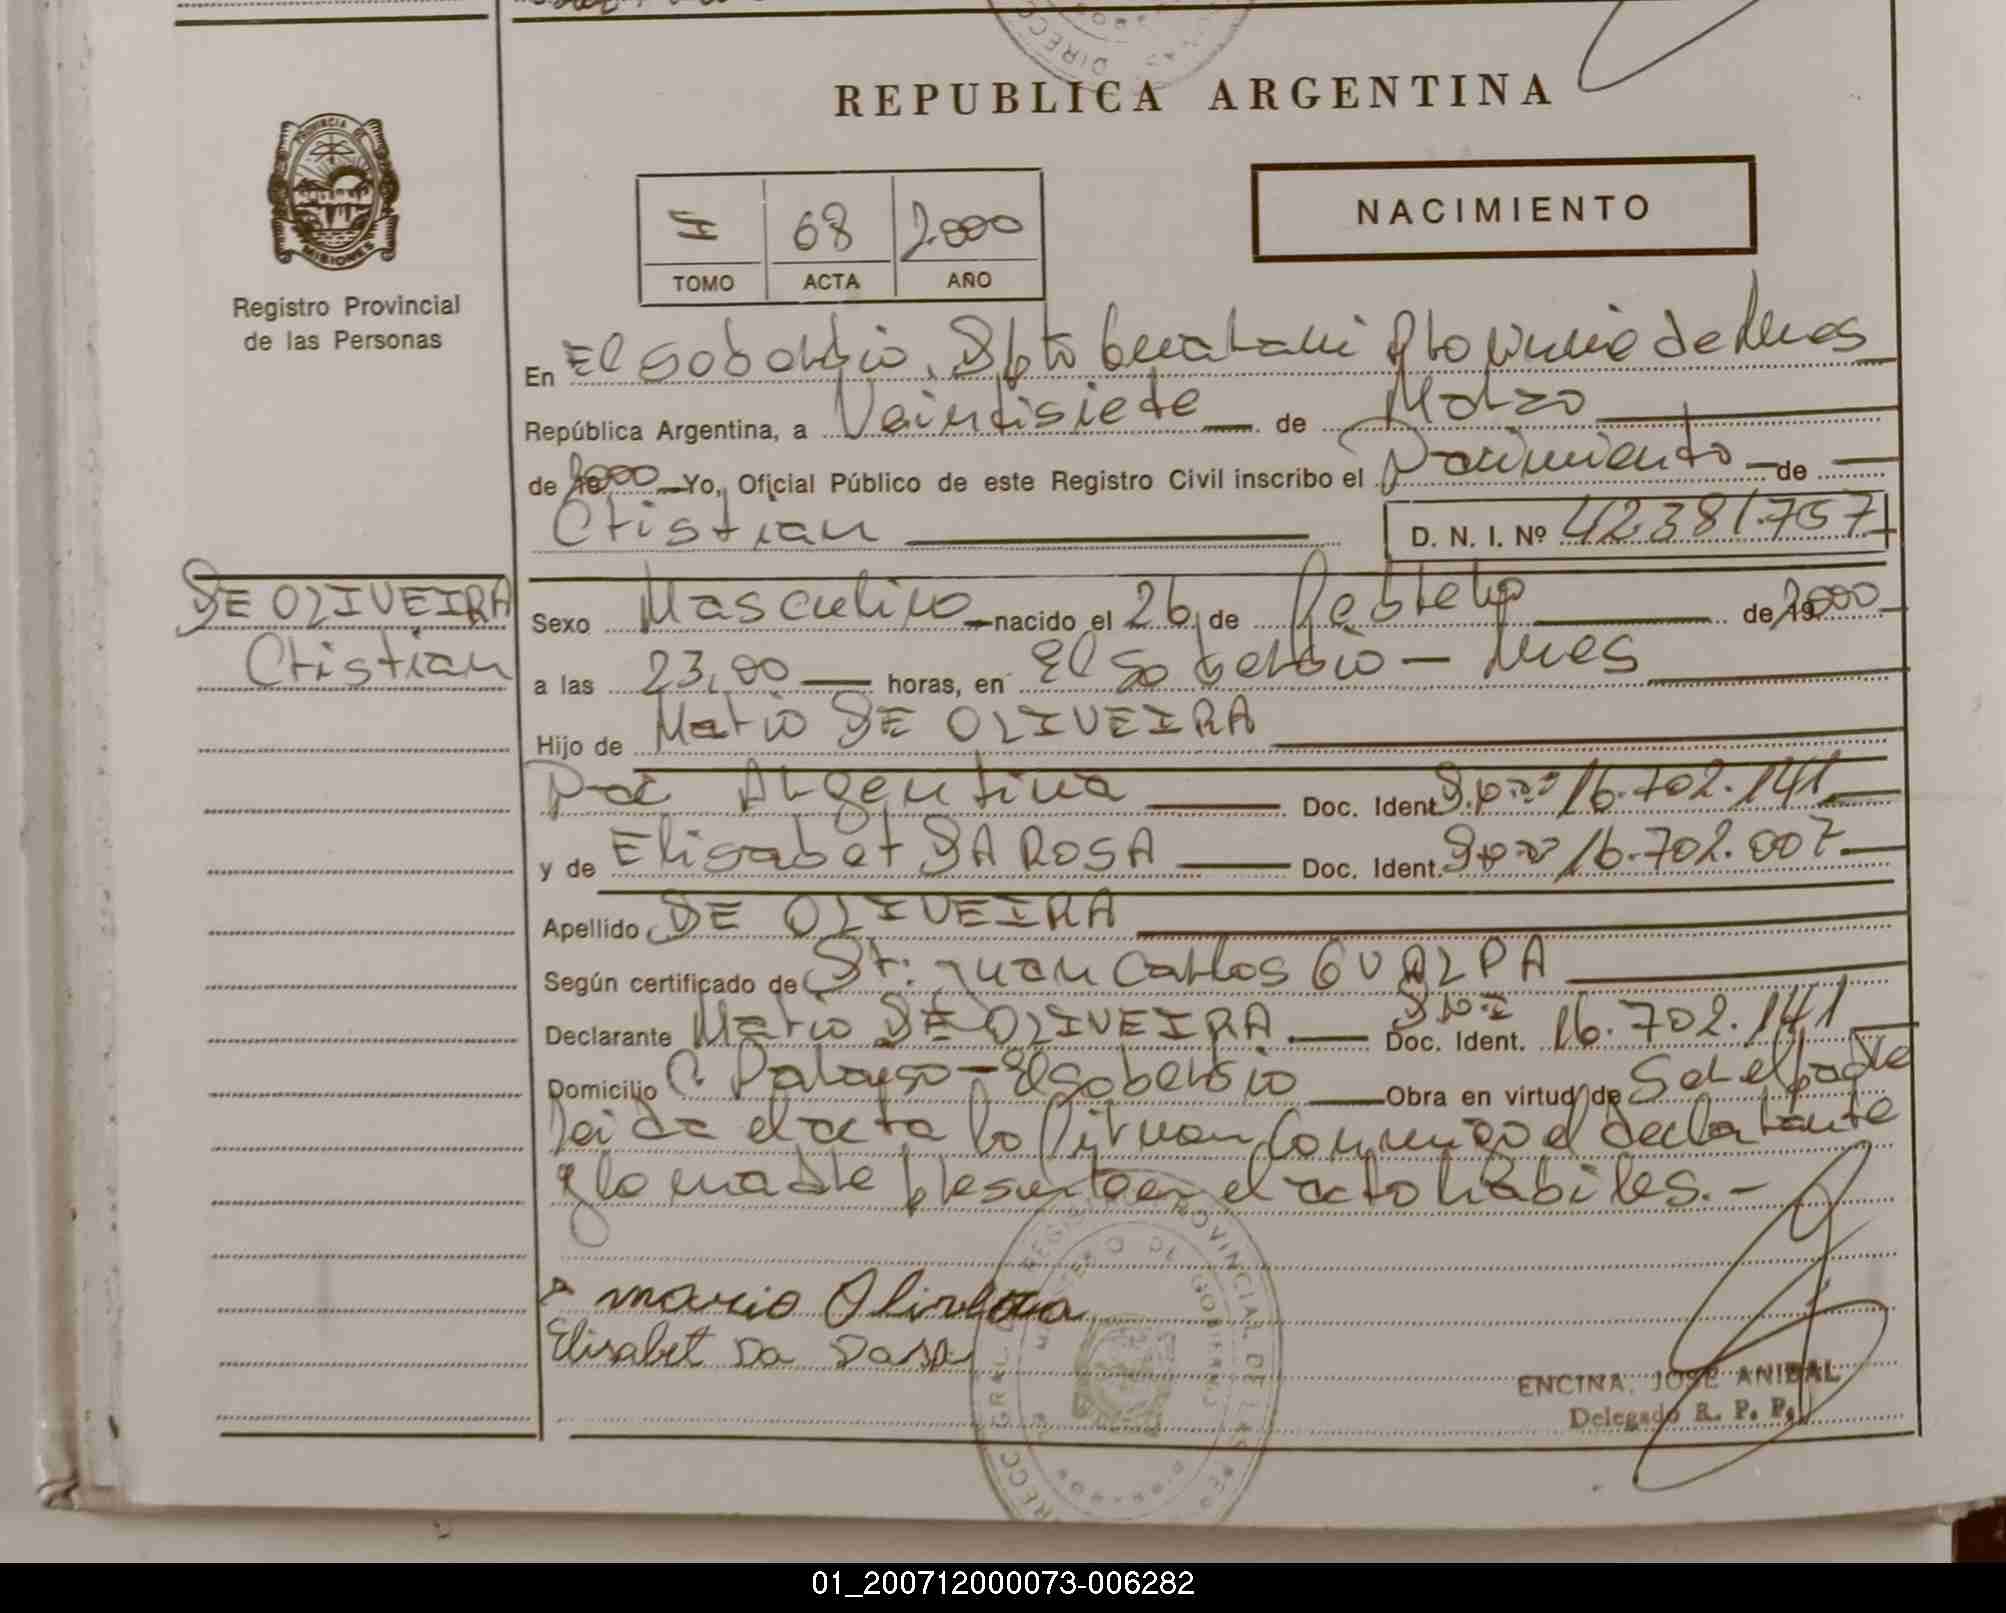 REPUBLICA ARGENTINA
PROVINCIA DE
MISIONES
Registro Provincial
de las Personas
I 68 2.000
TOMO ACTA AÑO
NACIMIENTO
En El Soberbio, Dpto Guarani Provincia de Mnes
República Argentina, a Veintisiete de Marzo
de 2000 Yo, Oficial Público de este Registro Civil inscribo el Nacimiento de
Cristian D. N. I. Nº 42.381.757
DE OLIVEIRA
Cristian
Sexo Masculino nacido el 26 de Febrero de 19 2000
a las 23,00 horas, en El Soberbio - Mnes
Hijo de Mario DE OLIVEIRA
Nac Argentina Doc. Ident. 16.702.141
y de Elisabet DA ROSA Doc. Ident. 16.702.007
Apellido DE OLIVEIRA
Según certificado de Dr: Juan Carlos GUALPA
Declarante Mario DE OLIVEIRA Doc. Ident. DNI 16.702.141
Domicilio El Soberbio Obra en virtud de Ser el padre
Leida el acta la firman conmigo el declarante
y la madre presente en el acto habiles.-
Mario Oliveira
Elisabet Da
ENCINA, JOSE ANIBAL
Delegado R. P. P.
01_200712000073-006282